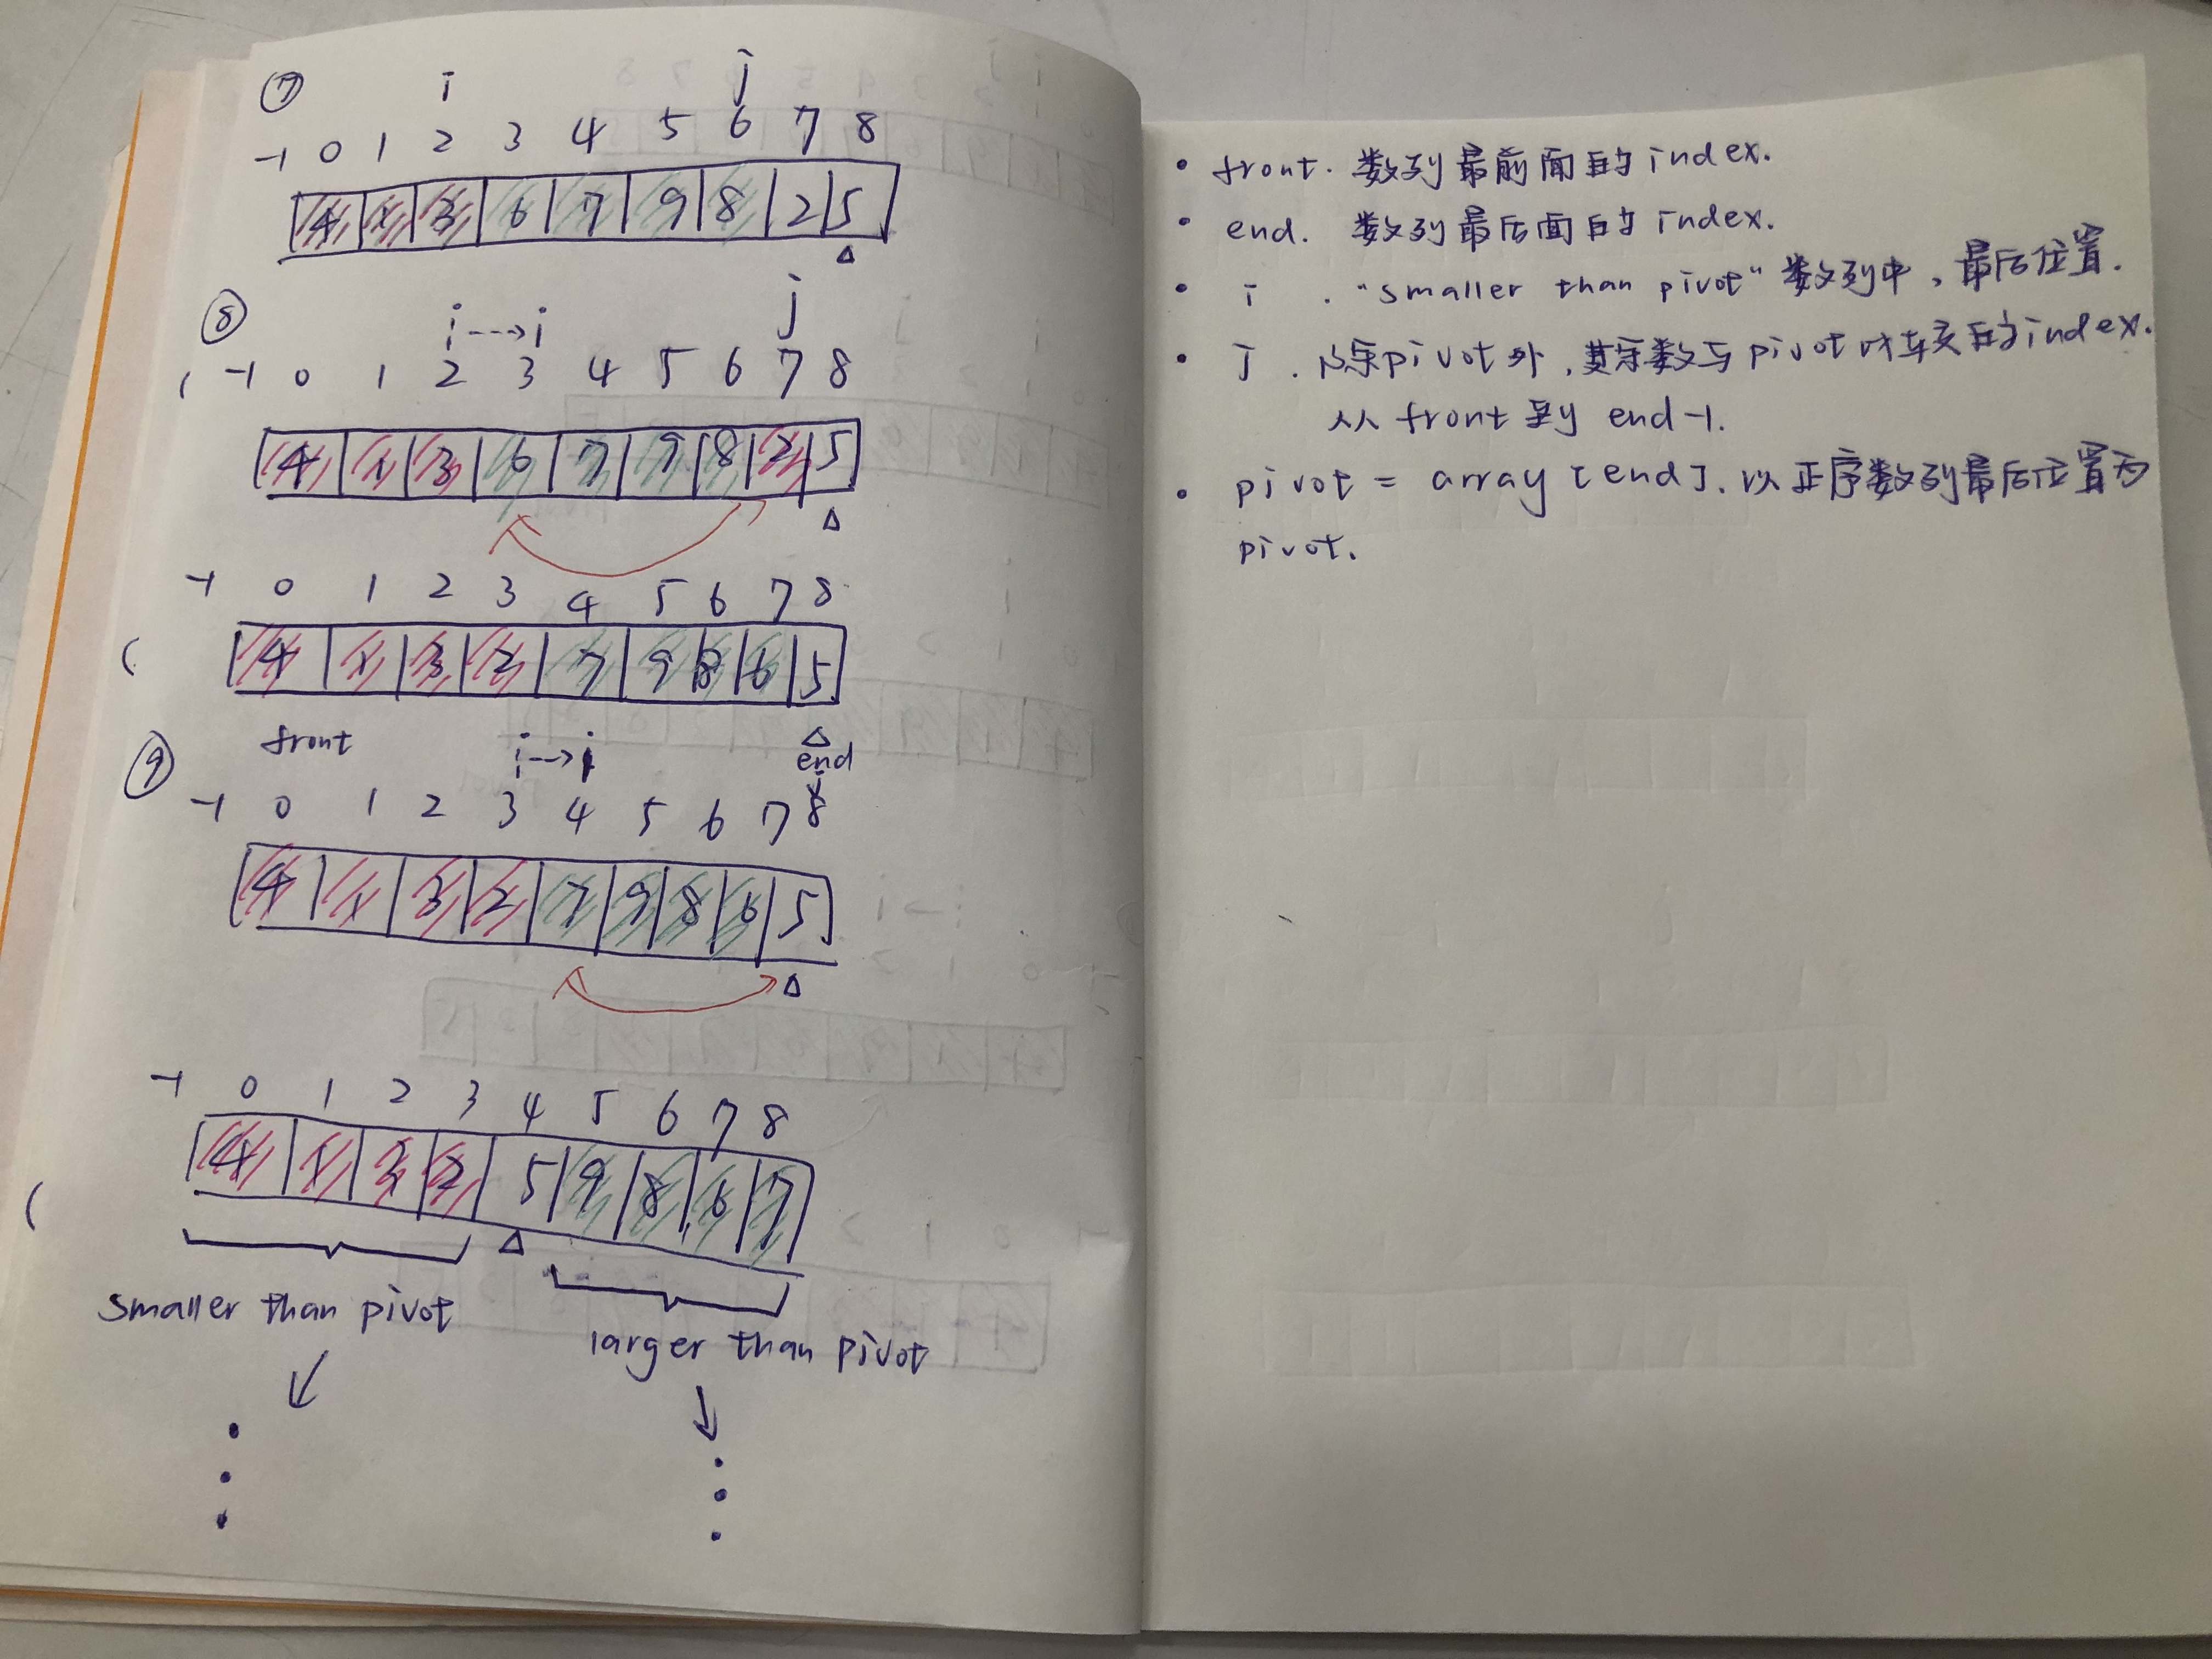 ⑦ i j
-1 0 1 2 3 4 5 6 7 8
4 1 3 6 7 9 8 2 5
△
⑧ i ---> i j
-1 0 1 2 3 4 5 6 7 8
4 1 3 6 7 9 8 2 5
△
-1 0 1 2 3 4 5 6 7 8
4 1 3 2 7 9 8 6 5
△
⑨ front i --> i end
j
-1 0 1 2 3 4 5 6 7 8
4 1 3 2 7 9 8 6 5
△
-1 0 1 2 3 4 5 6 7 8
4 1 3 2 5 9 8 6 7
△
smaller than pivot
larger than pivot
• front. 数列最前面的index.
• end. 数列最后面的index.
• i . "smaller than pivot" 数列中, 最后位置.
• j . 除pivot外, 其余数与pivot比较的index.
从front到 end-1.
• pivot = array [end]. 以正序数列最后位置为
pivot.